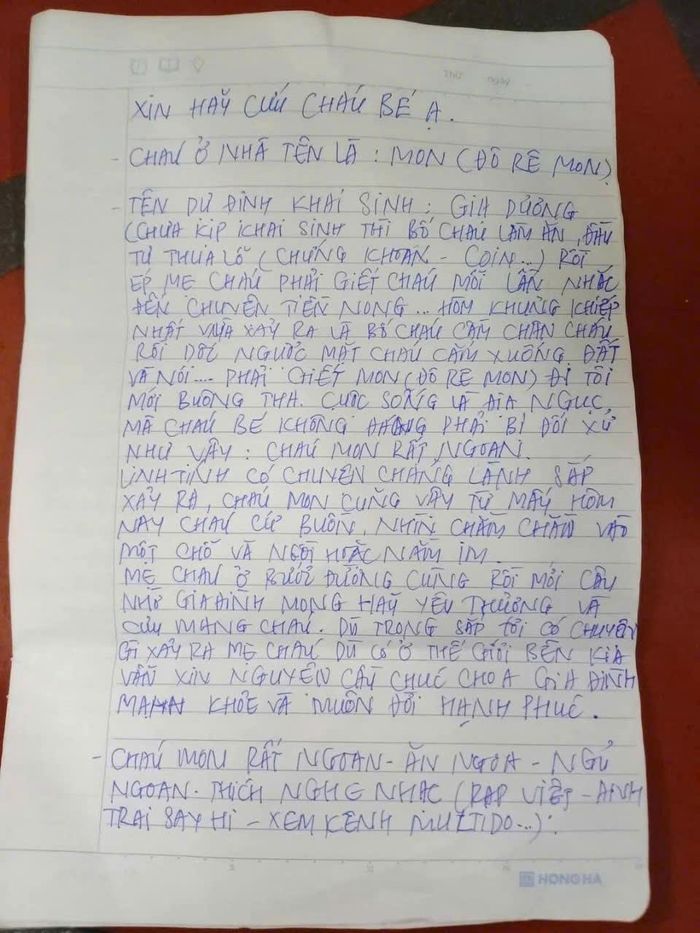 THỨ NGÀY
XIN HÃY CỨU CHÁU BÉ Ạ.
- CHÁU Ở NHÀ TÊN LÀ : MON (ĐÔ RÊ MON)
- TÊN DỰ ĐỊNH KHAI SINH : GIA DƯƠNG
(CHƯA KỊP KHAI SINH THÌ BỐ CHÁU LÀM ĂN, ĐẦU
TƯ THUA LỖ (CHỨNG KHOÁN - COIN...) RỒI
ÉP MẸ CHÁU PHẢI GIẾT CHÁU MỖI LẦN NHẮC
ĐẾN CHUYỆN TIỀN NONG ... HÔM KHỦNG KHIẾP
NHẤT VỪA XẢY RA LÀ BỐ CHÁU CẦM CHÂN CHÁU
RỒI DỐC NGƯỢC MẶT CHÁU CẮM XUỐNG ĐẤT
VÀ NÓI .... PHẢI GIẾT MON (ĐÔ RÊ MON) ĐI TÔI
MỚI BUÔNG THA. CUỘC SỐNG LÀ ĐỊA NGỤC
MÀ CHÁU BÉ KHÔNG ĐÁNG PHẢI BỊ ĐỐI XỬ
NHƯ VẬY : CHÁU MON RẤT NGOAN.
LINH TÍNH CÓ CHUYỆN CHẲNG LÀNH SẮP
XẢY RA, CHÁU MON CŨNG VẬY TỪ MẤY HÔM
NAY CHÁU CỨ BUỒN, NHÌN CHẰM CHẰM VÀO
MỘT CHỖ VÀ NGỒI HOẶC NẰM IM.
MẸ CHÁU Ở BƯỚC ĐƯỜNG CÙNG RỒI MỚI CẦU
NHỜ GIA ĐÌNH MONG HÃY YÊU THƯƠNG VÀ
CƯU MANG CHÁU. DÙ TRONG SẮP TỚI CÓ CHUYỆN
GÌ XẢY RA MẸ CHÁU DÙ CÓ Ở THẾ GIỚI BÊN KIA
VẪN XIN NGUYỆN CẦU CHÚC CHO GIA ĐÌNH
MẠNH KHỎE VÀ MUÔN ĐỜI HẠNH PHÚC.
- CHÁU MON RẤT NGOAN - ĂN NGOA - NGỦ
NGOAN. THÍCH NGHE NHẠC (RAP VIỆT - ANH
TRAI SAY HI - XEM KÊNH MULTIDO...).
HONG HA